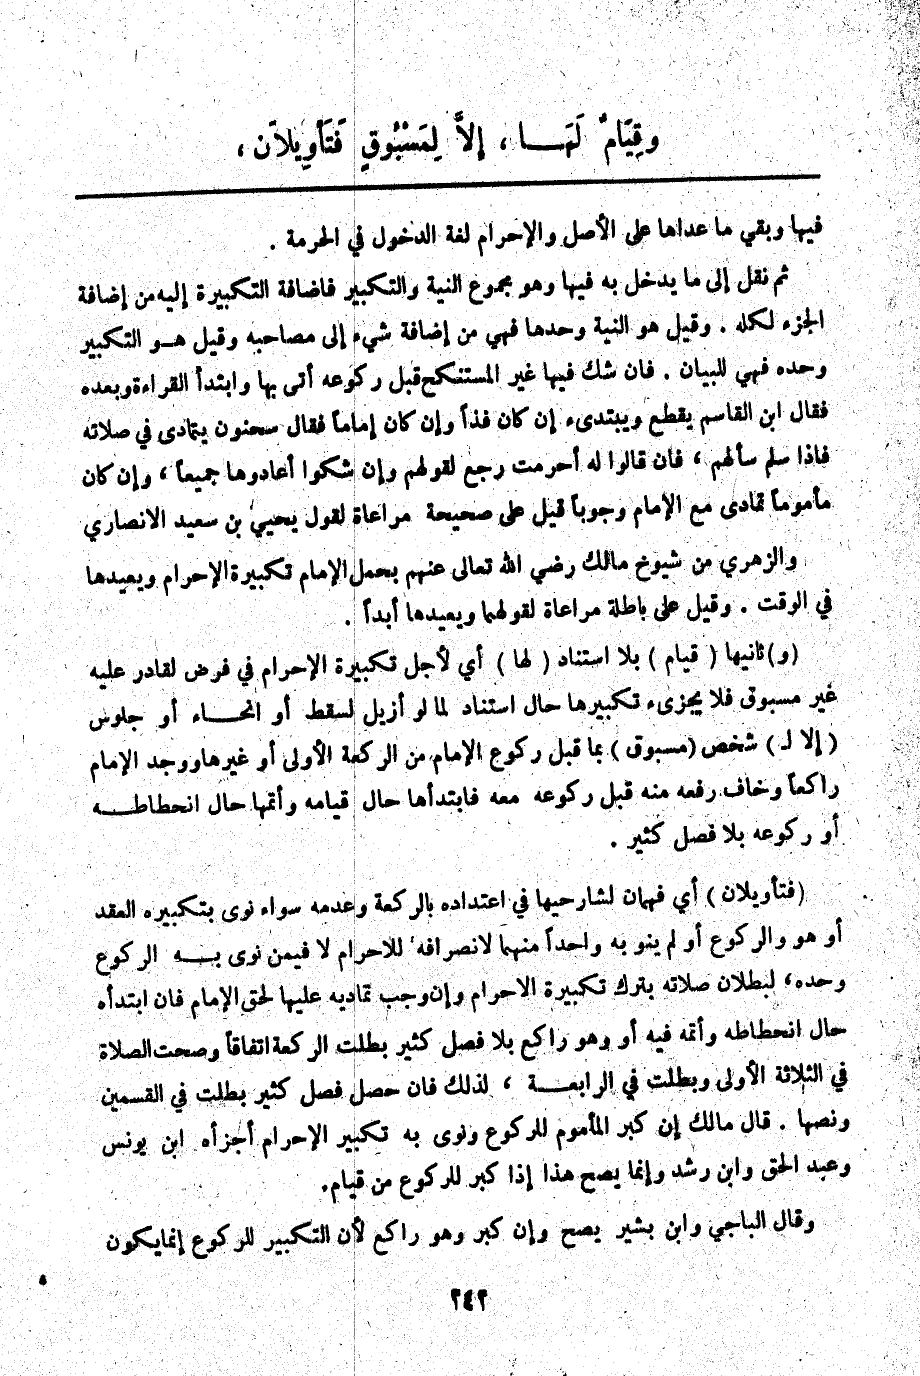 وقِيَامٌ لَهَــا ، إلاَّ لِمَسْبُوقٍ فَتَأْوِيلاَن ،
فيها وبقي ما عداها على الأصل والإحرام لغة الدخول في الحرمة .
ثم نقل إلى ما يدخل به فيها وهو مجموع النية والتكبير فاضافة التكبيرة إليه من إضافة
الجزء لكله . وقيل هو النية وحدها فهي من إضافة شيء إلى مصاحبه وقيل هــو التكبير
وحده فهي للبيان . فان شك فيها غير المستنكح قبل ركوعه أتى بها وابتدأ القراءة وبعده
فقال ابن القاسم يقطع ويبتدىء إن كان فذاً وإن كان إماماً فقال سحنون يتمادى في صلاته
فاذا سلم سألهم ، فان قالوا له أحرمت رجع لقولهم وإن شكوا أعادوها جميعاً ، وإن كان
مأموماً تمادى مع الإمام وجوباً قيل على صحيحة مراعاة لقول يحيى بن سعيد الانصاري
والزهري من شيوخ مالك رضي الله تعالى عنهم بحمل الإمام تكبيرة الإحرام ويعيدها
في الوقت . وقيل على باطلة مراعاة لقولهما ويعيدها أبداً .
(و) ثانيها ( قيام ) بلا استناد ( لها ) أي لأجل تكبيرة الإحرام في فرض لقادر عليه
غير مسبوق فلا يجزىء تكبيرها حال استناد لما لو أزيل لسقط أو انحــاء أو جلوس
( إلا لـ ) شخص (مسبوق ) بما قبل ركوع الإمام من الركعة الأولى أو غيرها ووجد الإمام
راكعاً وخاف رفعه منه قبل ركوعه معه فابتدأها حال قيامه وأتمها حال انحطاطــه
أو ركوعه بلا فصل كثير .
(فتأويلان ) أي فهمان لشارحيها في اعتداده بالركعة وعدمه سواء نوى بتكبيره العقد
أو هو والركوع أو لم ينو به واحداً منهما لانصرافه للاحرام لا فيمن نوى بــه الركوع
وحده ، لبطلان صلاته بترك تكبيرة الاحرام وإن وجب تماديه عليها لحق الإمام فان ابتدأه
حال انحطاطه وأتمه فيه أو وهو راكع بلا فصل كثير بطلت الركعة اتفاقاً وصحت الصلاة
في الثلاثة الأولى وبطلت في الرابعــة ، لذلك فان حصل فصل كثير بطلت في القسمين
ونصها . قال مالك إن كبر المأموم للركوع ونوى به تكبير الإحرام أجزأه ابن يونس
وعبد الحق وابن رشد وإنما يصح هذا إذا كبر للركوع من قيام.
وقال الباجي وابن بشير يصح وإن كبر وهو راكع لأن التكبير للركوع إنما يكون
٢٤٢